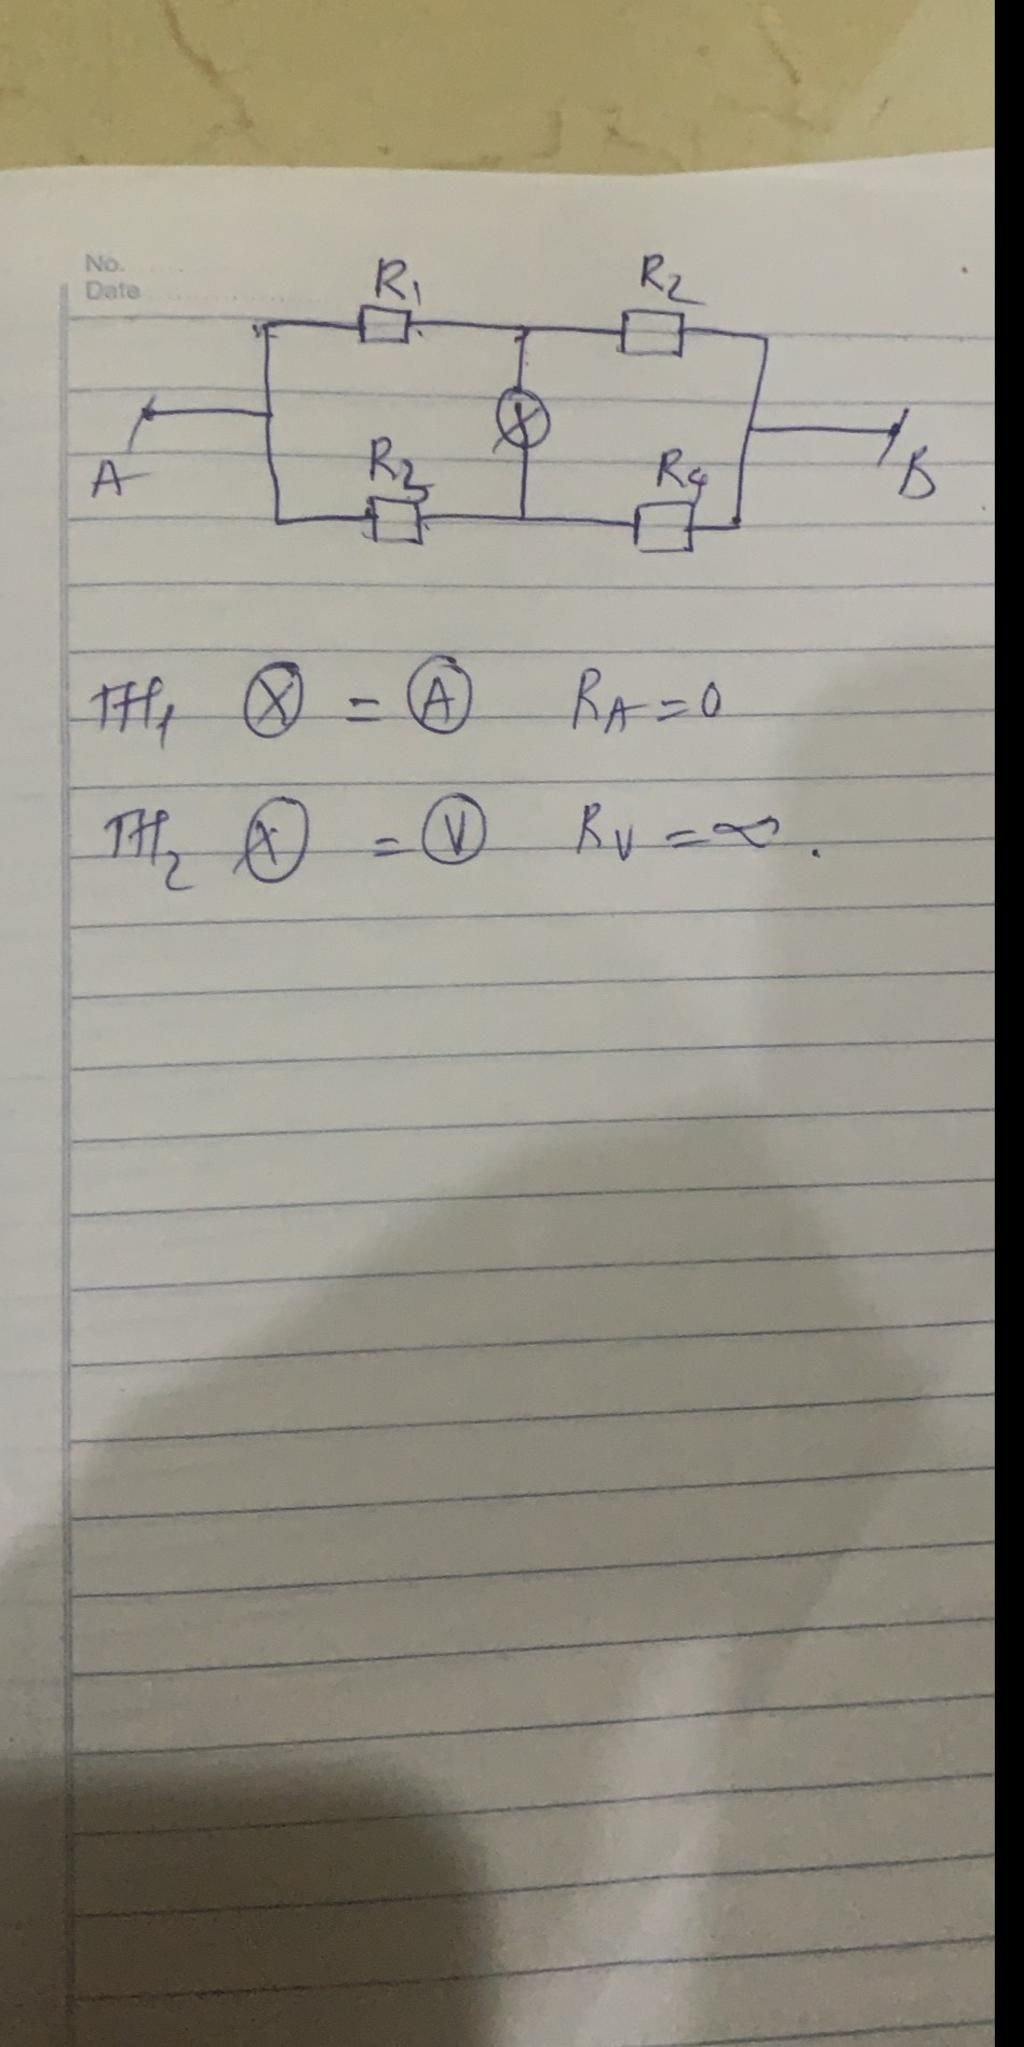 No.
Date
R₁ R₂
A R₃ R₄ B
TH₁ Ⓧ = Ⓐ R_A = 0
TH₂ Ⓧ = Ⓥ R_V = ∞.